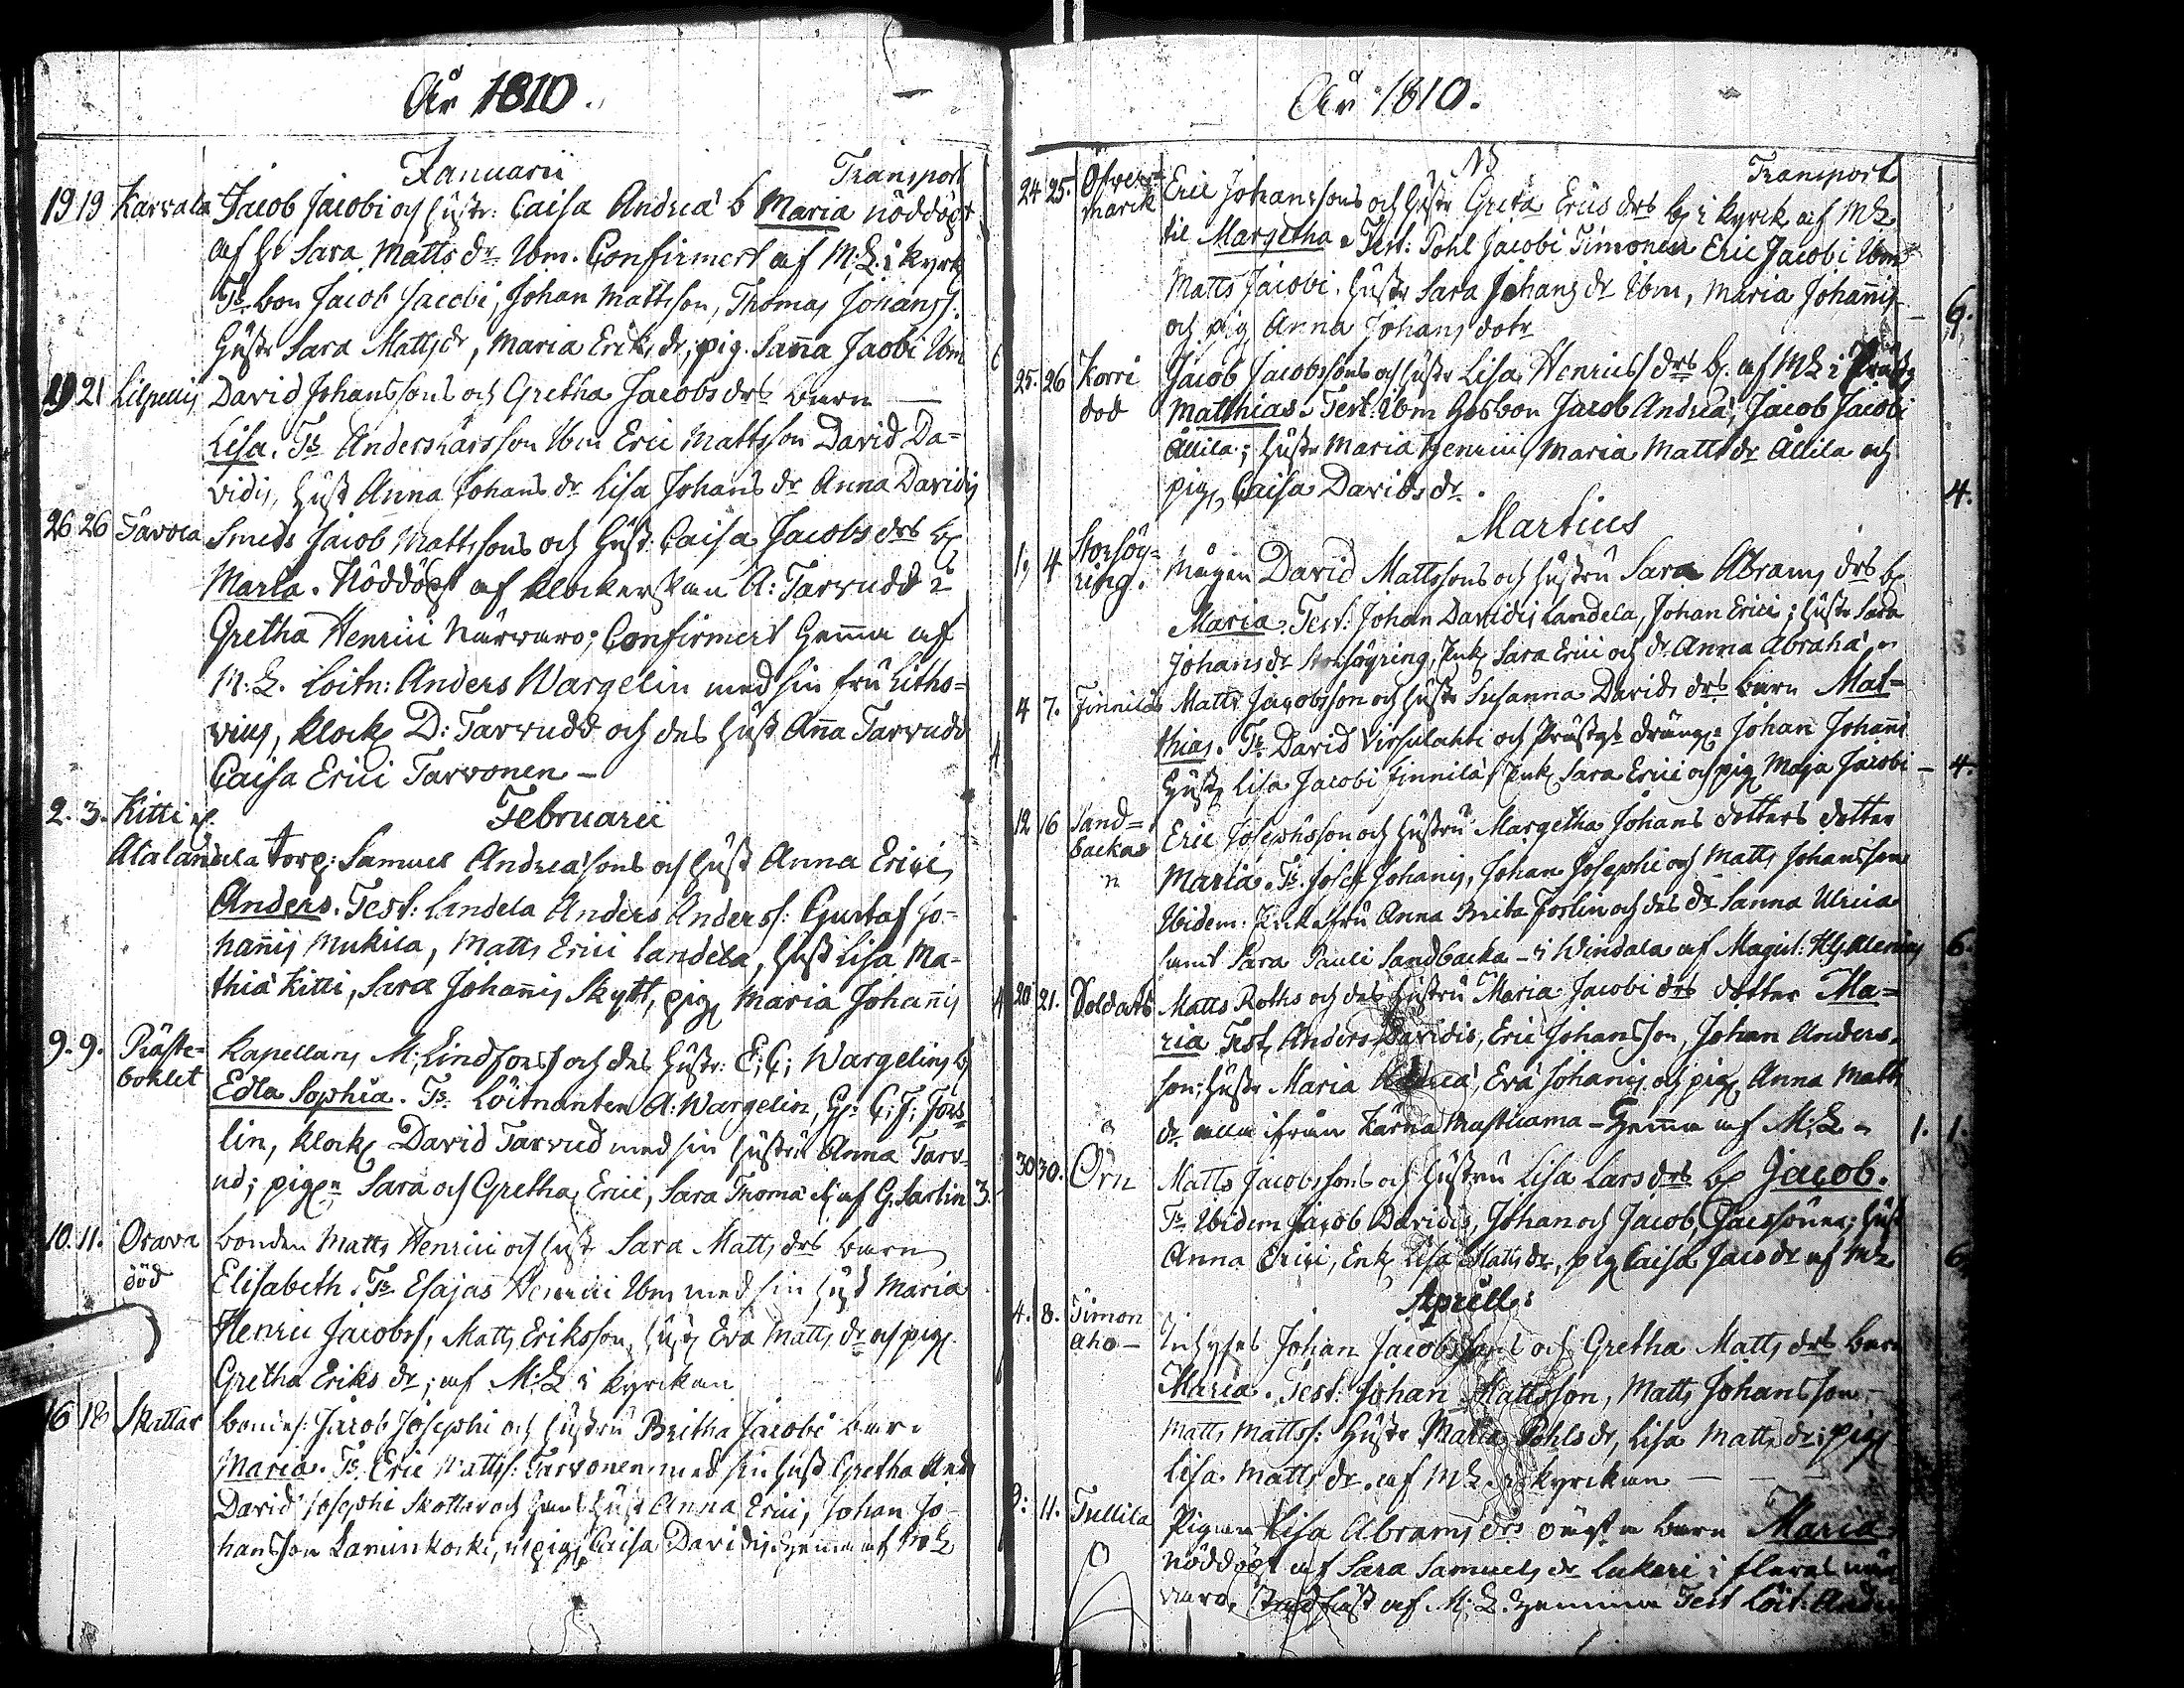 År 1810.
Januarii Transport
19 19 Karvala Jacob Jacobi och Hustr: Caisa Andreæ b Maria nöddöpt
af H. Sara Matts dr Ibm. Confirmert af M:L. i Kyrk
Ts. bon Jacob Jacobi, Johan Mattsson, Thomas Johanss:
Hustr Sara Matts dr, Maria Eriks dr, pig. Sanna Jacobi Ibm
19 21 David Johanssons och Gretha Jacobs drs barn
Lisa. Ts Anders Larsson Ibm Eric Mattsson David Da=
vidis, Hust Anna Johans dr Lisa Johans dr Anna Davidis
26 26 Tarvola Smeds Jacob Mattssons och Hust: Caisa Jacobs drs b
Maria. Nöddöpt af Klockerskan A: Tarvudd i
Gretha Henrici Närvaro; Confirmert Hemma af
M:L. Loitn: Anders Wargelin med sin fru Litho=
vius, Klock D: Tarvudd och des Hust Anna Tarvudd
Caisa Erici Tarvonen –
Februarii
2. 3. Kitti
Alalandela torp: Samuel Andreæsons och Hust Anna Erici
Anders. Test: Landela Anders Anderss: Gustaf Jo=
hannis Mukila, Matts Erici Landela, Hust Lisa Ma=
thiæ Kitti, Sara Johannis Skytt, pig Maria Johannis
9. 9. Präste=
bohlet Kapellans M: Lindfors och des Hustr: E: C: Wargelins b
Edla Sophia. Ts. Löitnanten A: Wargelin, H: C: F: Fors=
lin, Klock David Tarvud med sin Hustru Anna Tarv=
ud; pign Sara och Gretha Erici, Sara Thomæ af G. Sarlin 3
10. 11. Orava
död bonden Matts Henrici och Hust Sara Matts drs barn
Elisabeth. Ts. Esajas Henrici Ibm med sin Hust Maria
Henric Jacobss, Matts Eriksson, Hust Eva Matts dr och pig
Gretha Eriks dr; af M:L i Kyrkan
16 18 Skattar bondes: Jacob Josephi och Hustru Britha Jacobi barn
Maria. Ts. Eric Mattss: Tarvonen med sin Hust Gretha And
David Josephi Skattar och Hans Hust Anna Erici, Johan Jo=
hansson Kaminkoski, pig Caisa Davidis. Hemma af ML
År 1810.
Transport
24 25. Öfver=
marck Eric Johanssons och Hustr Greta Erics drs b i Kyrck af ML
til Margetha. Test: Pohl Jacobi Timonen Eric Jacobi Ibm
Matts Jacobi. Hustr Sara Johans dr Ibm, Maria Johannis
och pig Anna Johans dotr – 6.
25. 26 Korri
död Jacob Jacobssons och Hustr Lisa Henrics drs b af ML i
Matthias. Test: Ibm Husbon Jacob Andreæ, Jacob Jacobi
Allila; Hustr Maria Henrici, Maria Matts dr Allila och
pig Caisa Davids dr. 4.
Martius
1, 4 Storsöy=
ring. Mågen David Mattssons och Hustru Sara Abrams drs b
Maria. Test: Johan Davidis Landela, Johan Erici; Hustr Sara
Johans dr Storsöyring, Enk Sara Erici och dr Anna Abrahæ
4 7. Finnilä Matts Jacobsson och Hustr Susanna Davids drs barn Mat=
thias. Ts. David Virsulahti och Prästgs dräng: Johan Johans
Hust Lisa Jacobi Finnilä, Enk Sara Erici och pig Maja Jacobi – 4.
12 16 Sand=
backa Eric Josephsson och Hustru Margetha Johans dotters dotter
Maria. Ts. Josef Johanis, Johan Josephi och Matts Johansson
Ibidem. Enkefru Anna Brita Forslin och des dr Sanna Ulrica
samt Sara Pauli Sandbacka – i Windala af Magist: 6.
20 21. Soldats Matts Roths och des Hustru Maria Jacobi drs dotter Ma=
ria Test. Anders Davidis, Eric Johansson, Johan Anders=
son; Hustr Maria Andreæ, Eva Johanis och pig Anna Matts
dr alla ifrån Kärnä – Hemma af M:L 1. 1.
30 30. Örn Matts Jacobssons och Hustru Lisa Lars drs b Jacob.
Ts. Ibidem Jacob Davidis, Johan och Jacob; Hust
Anna Erici, Enk Lisa Matts dr, pig Caisa Jacs dr af ML 6.
Aprill:
4. 8. Timon
aho – Inhyses Johan Jacobssons och Gretha Matts drs barn
Maria. Test: Johan Mattsson, Matts Johansson
Matts Mattss: Hustr Maria Pohls dr, Lisa Matts dr; pig
Lisa Matts dr. af ML i Kyrckan
9: 11. Tullila Pigan Lisa Abrams drs barn Maria
Nöddöpt af Sara Samuels dr Lukari i fleras när=
varo, af M:L. Hemma Test Löit. Anders